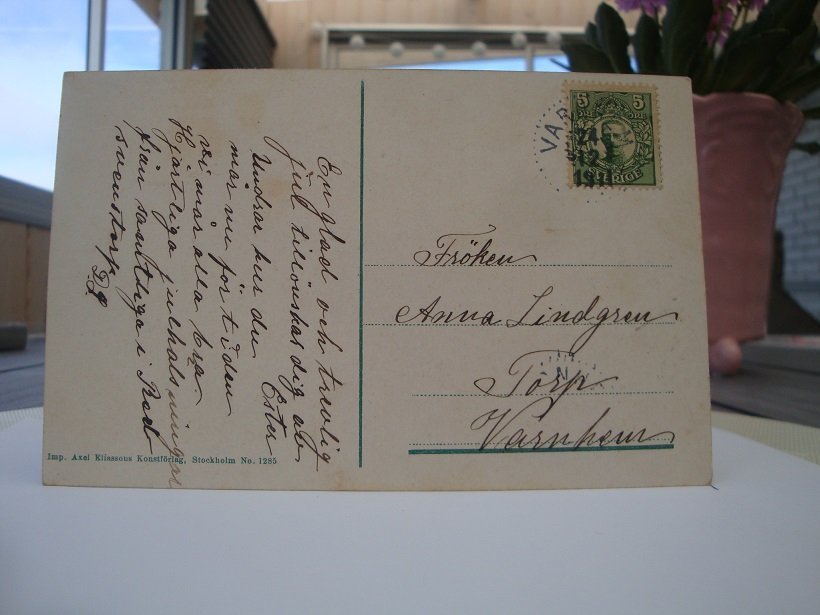 En glad och trevlig
jul tillönskas dig av
Ester
Undrar hur du
mår nu för tiden
vi mår alla bra
Hjärtliga julhälsningar
från samtliga i
svenstorp
Imp. Axel Eliassons Konstförlag, Stockholm No. 1285
5 5
SVERIGE
VAR
24
12
19
Fröken
Anna Lindgren
Torp
Varnhem